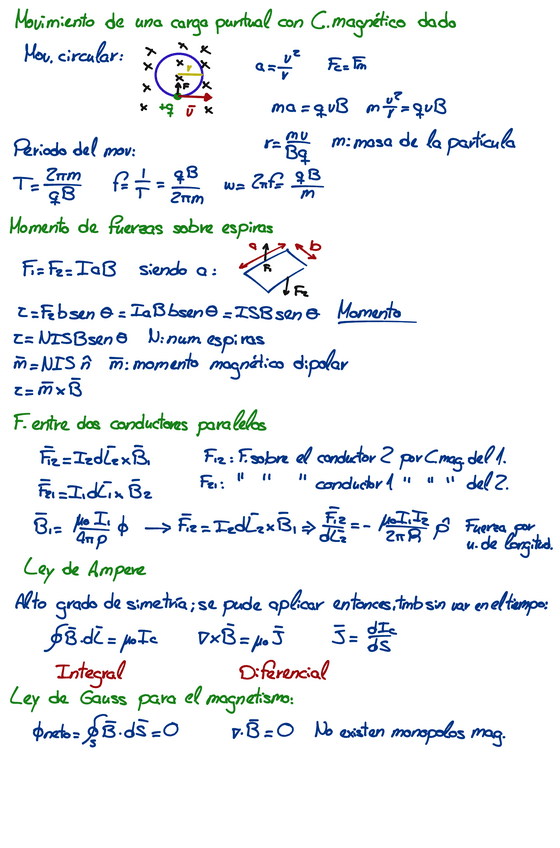 Movimiento de una carga puntual con C.magnético dado
Mov. circular: a = v²/r F̄c = F̄m
r F +q v̄
ma = qvB m v²/r = qvB
r = mv/Bq m: masa de la partícula
Periodo del mov:
T = 2πm/qB f = 1/T = qB/2πm w = 2πf = qB/m
Momento de fuerzas sobre espiras
F₁ = F₂ = IaB siendo a: a b F₁ F₂
τ = F₂ b sen θ = IaBb sen θ = ISB sen θ Momento
τ = NISB sen θ N: num espiras
m̄ = NIS n̂ m̄: momento magnético dipolar
τ = m̄ × B̄
F. entre dos conductores paralelos
F̄₁₂ = I₂dL̄₂ × B̄₁ F₁₂: F. sobre el conductor 2 por C mag. del 1.
F̄₂₁ = I₁dL̄₁ × B̄₂ F₂₁: " " " conductor 1 " " " del 2.
B̄₁ = μ₀ I₁/4πρ ϕ → F̄₁₂ = I₂dL̄₂ × B̄₁ ⇒ F̄₁₂/dL̄₂ = - μ₀I₁I₂/2πR ρ̂ Fuerza por
u. de longitud.
Ley de Ampere
Alto grado de simetría; se pude aplicar entonces, tmb sin var en el tiempo:
∮B̄·dL̄ = μ₀ Ic ∇×B̄ = μ₀ J̄ J̄ = dIc/dS
Integral Diferencial
Ley de Gauss para el magnetismo:
ϕneto = ∮s B̄·dS̄ = 0 ∇·B̄ = 0 No existen monopolos mag.